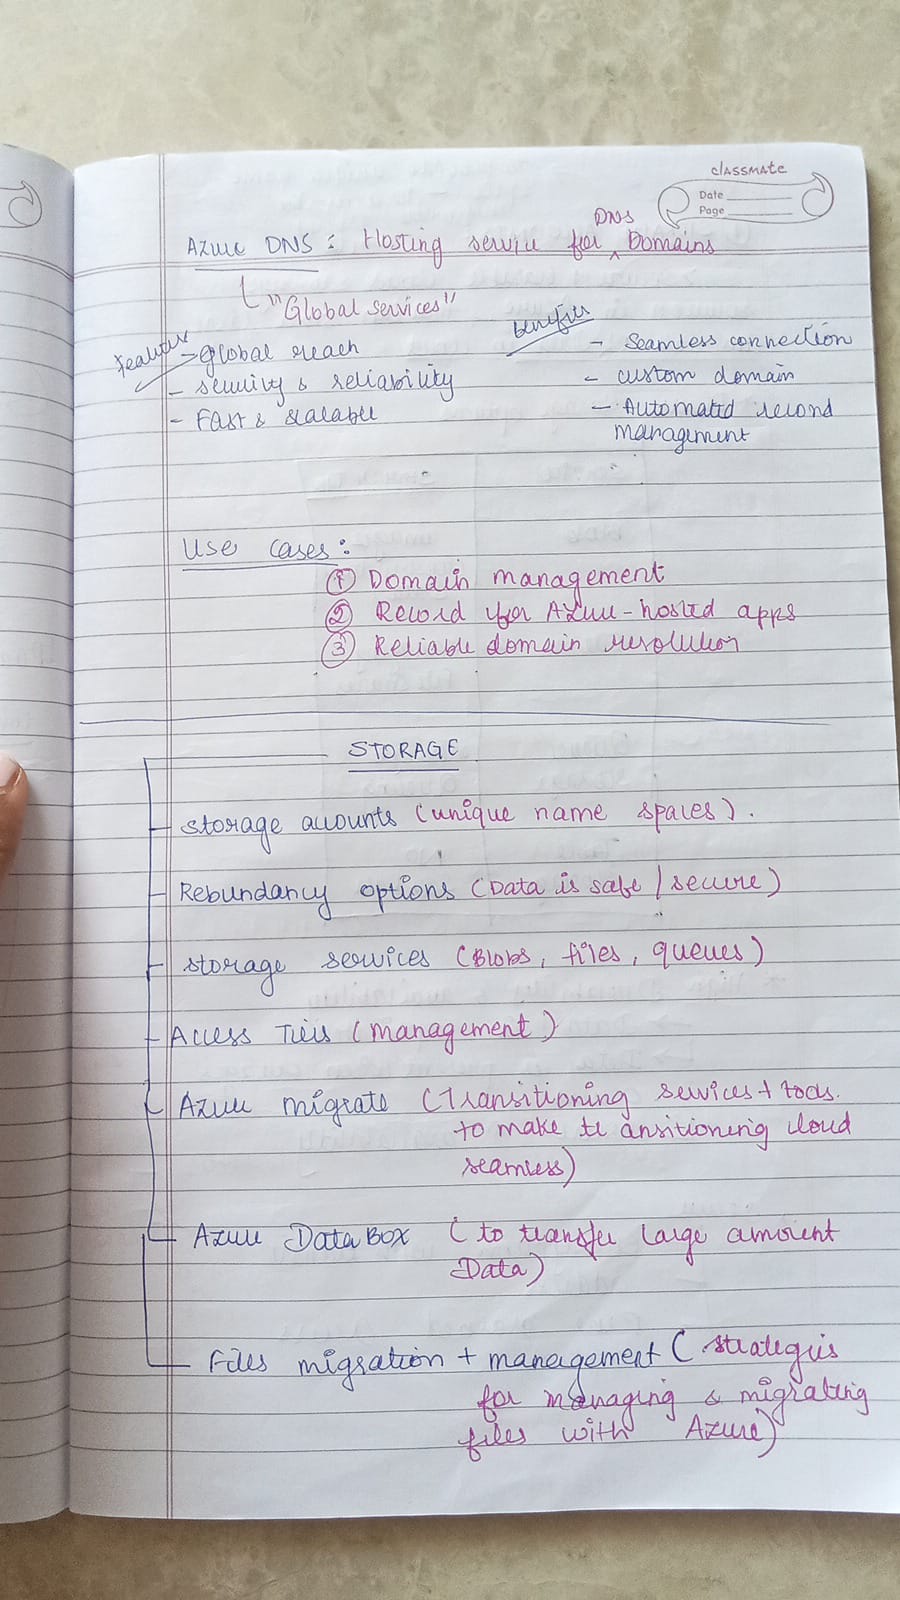 classmate
Date
Page
DNS
Azure DNS : Hosting service for ^ Domains
"Global services"
features
- global reach
- security & reliability
- Fast & scalable
benefits
- Seamless connection
- custom domain
- Automated record
management
Use cases :
① Domain management
② Record for Azure-hosted apps
③ Reliable domain resolution
STORAGE
- storage accounts (unique name spaces).
- Rebundancy options (Data is safe / secure)
- storage services (Blobs, files, queues)
- Access Tiers (management)
- Azure migrate (Transitioning services + tools.
to make transitioning cloud
seamless)
- Azure Data Box (to transfer large amount
Data)
- Files migration + management (strategies
for managing & migrating
files with Azure)